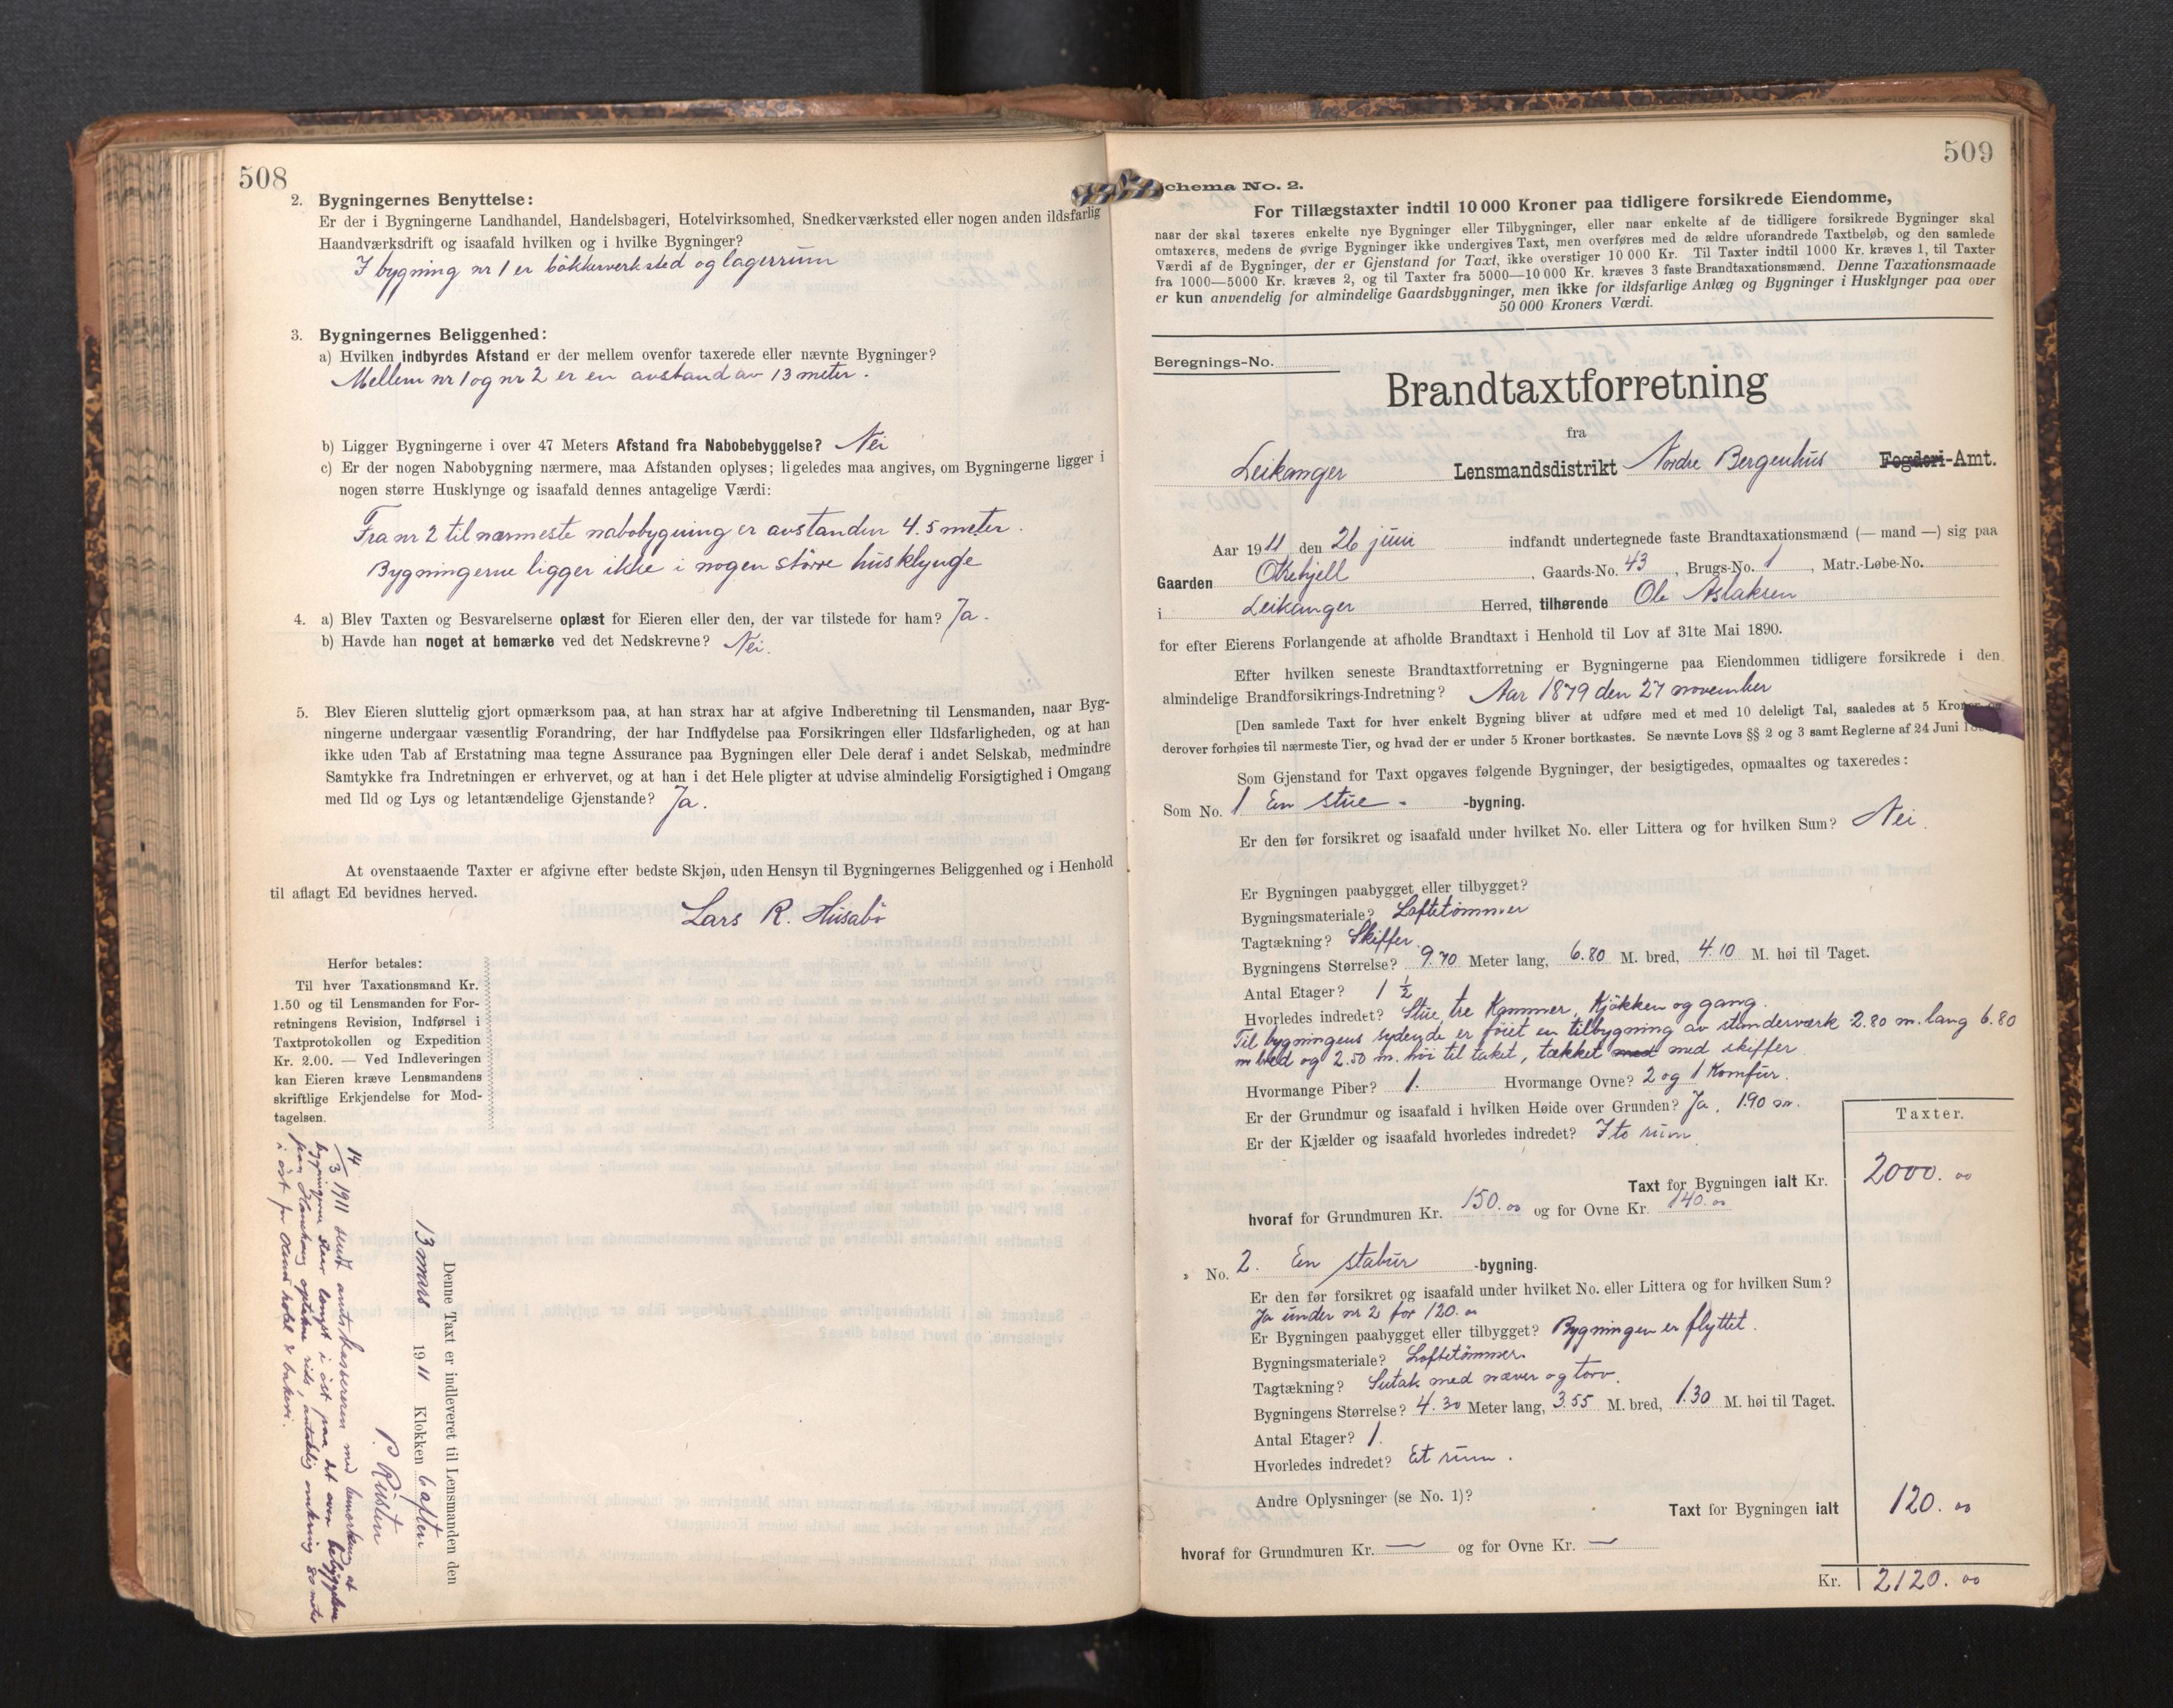 508
2. Bygningernes Benyttelse:
Er der i Bygningerne Landhandel, Handelsbageri, Hotelvirksomhed, Snedkerværksted eller nogen anden ildsfarlig
Haandværksdrift og isaafald hvilken og i hvilke Bygninger?
I bygning nr 1 er bökkerverksted og lagerrum
3. Bygningernes Beliggenhed:
a) Hvilken indbyrdes Afstand er der mellem ovenfor taxerede eller nævnte Bygninger?
Mellem nr 1 og nr 2 er en avstand av 13 meter.
b) Ligger Bygningerne i over 47 Meters Afstand fra Nabobebyggelse? Nei
c) Er der nogen Nabobygning nærmere, maa Afstanden oplyses; ligeledes maa angives, om Bygningerne ligger i
nogen større Husklynge og isaafald dennes antagelige Værdi:
Fra nr 2 til nærmeste nabobygning er avstanden 4.5 meter.
Bygningerne ligger ikke i nogen större husklynge
4. a) Blev Taxten og Besvarelserne oplæst for Eieren eller den, der var tilstede for ham? Ja.
b) Havde han noget at bemærke ved det Nedskrevne? Nei.
5. Blev Eieren sluttelig gjort opmærksom paa, at han strax har at afgive Indberetning til Lensmanden, naar Byg-
ningerne undergaar væsentlig Forandring, der har Indflydelse paa Forsikringen eller Ildsfarligheden, og at han
ikke uden Tab af Erstatning maa tegne Assurance paa Bygningen eller Dele deraf i andet Selskab, medmindre
Samtykke fra Indretningen er erhvervet, og at han i det Hele pligter at udvise almindelig Forsigtighed i Omgang
med Ild og Lys og letantændelige Gjenstande? Ja.
At ovenstaaende Taxter er afgivne efter bedste Skjøn, uden Hensyn til Bygningernes Beliggenhed og i Henhold
til aflagt Ed bevidnes herved.
Lars R. Husabö
Herfor betales:
Til hver Taxationsmand Kr.
1.50 og til Lensmanden for For-
retningens Revision, Indførsel i
Taxtprotokollen og Expedition
Kr. 2.00. — Ved Indleveringen
kan Eieren kræve Lensmandens
skriftlige Erkjendelse for Mod-
tagelsen.
Denne Taxt er indleveret til Lensmanden den
13 mars 1911 Klokken 6 aften
P. Risten
14/3 1911 sendt amtskassereren med bemerkning at
bygningerne staar længst i öst paa det oven bebyggelsen
fra Hanehaug optatne rids, antakelig omkring 80 meter
i öst for hotel & bakeri.
509
Schema No. 2.
For Tillægstaxter indtil 10 000 Kroner paa tidligere forsikrede Eiendomme,
naar der skal taxeres enkelte nye Bygninger eller Tilbygninger, eller naar enkelte af de tidligere forsikrede Bygninger skal
omtaxeres, medens de øvrige Bygninger ikke undergives Taxt, men overføres med de ældre uforandrede Taxtbeløb, og den samlede
Værdi af de Bygninger, der er Gjenstand for Taxt, ikke overstiger 10 000 Kr. Til Taxter indtil 1000 Kr. kræves 1, til Taxter
fra 1000—5000 Kr. kræves 2, og til Taxter fra 5000—10 000 Kr. kræves 3 faste Brandtaxationsmænd. Denne Taxationsmaade
er kun anvendelig for almindelige Gaardsbygninger, men ikke for ildsfarlige Anlæg og Bygninger i Husklynger paa over
50 000 Kroners Værdi.
Beregnings-No.
Brandtaxtforretning
fra
Leikanger Lensmandsdistrikt Nordre Bergenhus Fogderi-Amt.
Aar 1911 den 26 juni indfandt undertegnede faste Brandtaxationsmænd (— mand —) sig paa
Gaarden Otrehjell, Gaards-No. 43, Brugs-No. 1, Matr.-Løbe-No.
i Leikanger Herred, tilhørende Ole Aslaksen
for efter Eierens Forlangende at afholde Brandtaxt i Henhold til Lov af 31te Mai 1890.
Efter hvilken seneste Brandtaxtforretning er Bygningerne paa Eiendommen tidligere forsikrede i den
almindelige Brandforsikrings-Indretning? Aar 1879 den 27 november
[Den samlede Taxt for hver enkelt Bygning bliver at udføre med et med 10 deleligt Tal, saaledes at 5 Kroner og
derover forhøies til nærmeste Tier, og hvad der er under 5 Kroner bortkastes. Se nævnte Lovs §§ 2 og 3 samt Reglerne af 24 Juni
Som Gjenstand for Taxt opgaves følgende Bygninger, der besigtigedes, opmaaltes og taxeredes:
Som No. 1 En stue -bygning.
Er den før forsikret og isaafald under hvilket No. eller Littera og for hvilken Sum? Nei
Er Bygningen paabygget eller tilbygget?
Bygningsmateriale? Loftetömmer
Tagtækning? Skiffer.
Bygningens Størrelse? 9.70 Meter lang, 6.80 M. bred, 4.10 M. høi til Taget.
Antal Etager? 1 ½
Hvorledes indredet? Stue, tre Kammer, Kjökken og gang.
Til bygningens sydende er föiet en tilbygning av stenderværk 2.80 m. lang 6.80
m bred og 2.50 m. höi til taket, tækket med med skiffer
Hvormange Piber? 1. Hvormange Ovne? 2 og 1 Komfur.
Er der Grundmur og isaafald i hvilken Høide over Grunden? Ja, 1.90 m.
Er der Kjælder og isaafald hvorledes indredet? I to rum.
Taxter.
Taxt for Bygningen ialt Kr. 2000.00
hvoraf for Grundmuren Kr. 150.00 og for Ovne Kr. 140.00
» No. 2. En stabur -bygning.
Er den før forsikret og isaafald under hvilket No. eller Littera og for hvilken Sum?
Ja under nr 2 for 120.00
Er Bygningen paabygget eller tilbygget? Bygningen er flyttet.
Bygningsmateriale? Loftetömmer.
Tagtækning? Sutak med næver og torv.
Bygningens Størrelse? 4.30 Meter lang, 3.55 M. bred, 1.30 M. høi til Taget.
Antal Etager? 1.
Hvorledes indredet? Et rum.
Andre Oplysninger (se No. 1)?
Taxt for Bygningen ialt 120.00
hvoraf for Grundmuren Kr. — og for Ovne Kr. —
Kr. 2120.00